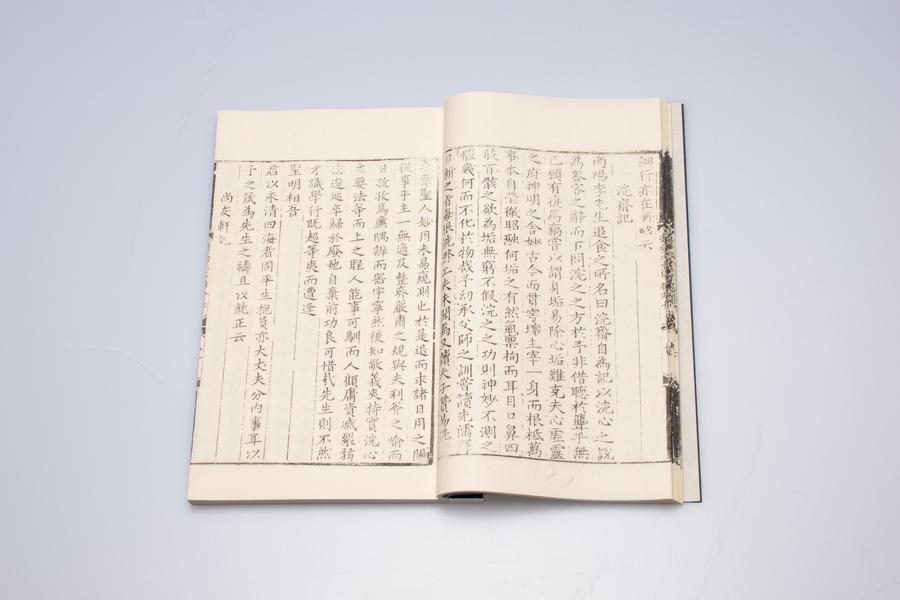 細行亦在所略云
浣齋記
南陽李先生退食之所名曰浣齋自為記以浣心之說
為答客之辭而下問浣之之方於予非借聽於聾乎無
已頗有從焉竊嘗以謂身垢易除心垢難克夫心虛靈
之府神明之舍妙古今而貫穹壤主宰一身而根柢萬
事本自瑩徹昭融何垢之有然氣稟拘而耳目口鼻四
肢百骸之欲為垢無窮不假浣之之功則神妙不測之
體幾何而不化於物哉予幼承父師之訓嘗讀先儒
日新之
聖人妙用未易窺測也於是退而求諸日用之間
從事乎主一無適及整齊嚴肅之規與夫利斧之喻而
日孜孜焉廉隅辨而器宇寧然後知敬義夾持實洗心
之要法等而上之聖人能事可馴而人顧庸資滅裂弱
志逡巡卒歸於廢地自棄前功良可惜哉先生則不然
才識學行既超等夷而遭逢
聖明相吾
君以永清四海者固平生抱負亦大丈夫分內事耳以
予之箴為先生之禱且以就正云
尚友軒記